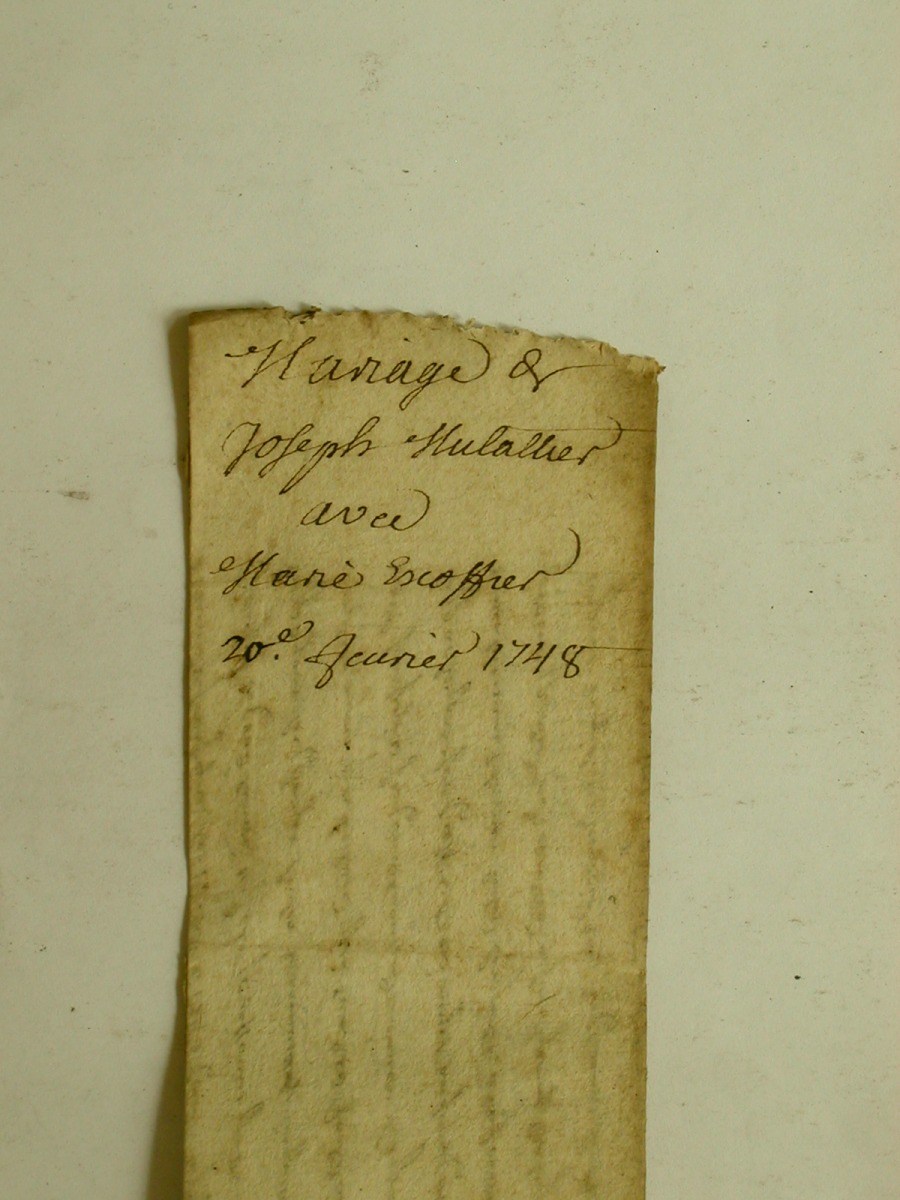 Mariage de
Joseph Mulattier
avec
Marie Escoffier
20.e feurier 1748